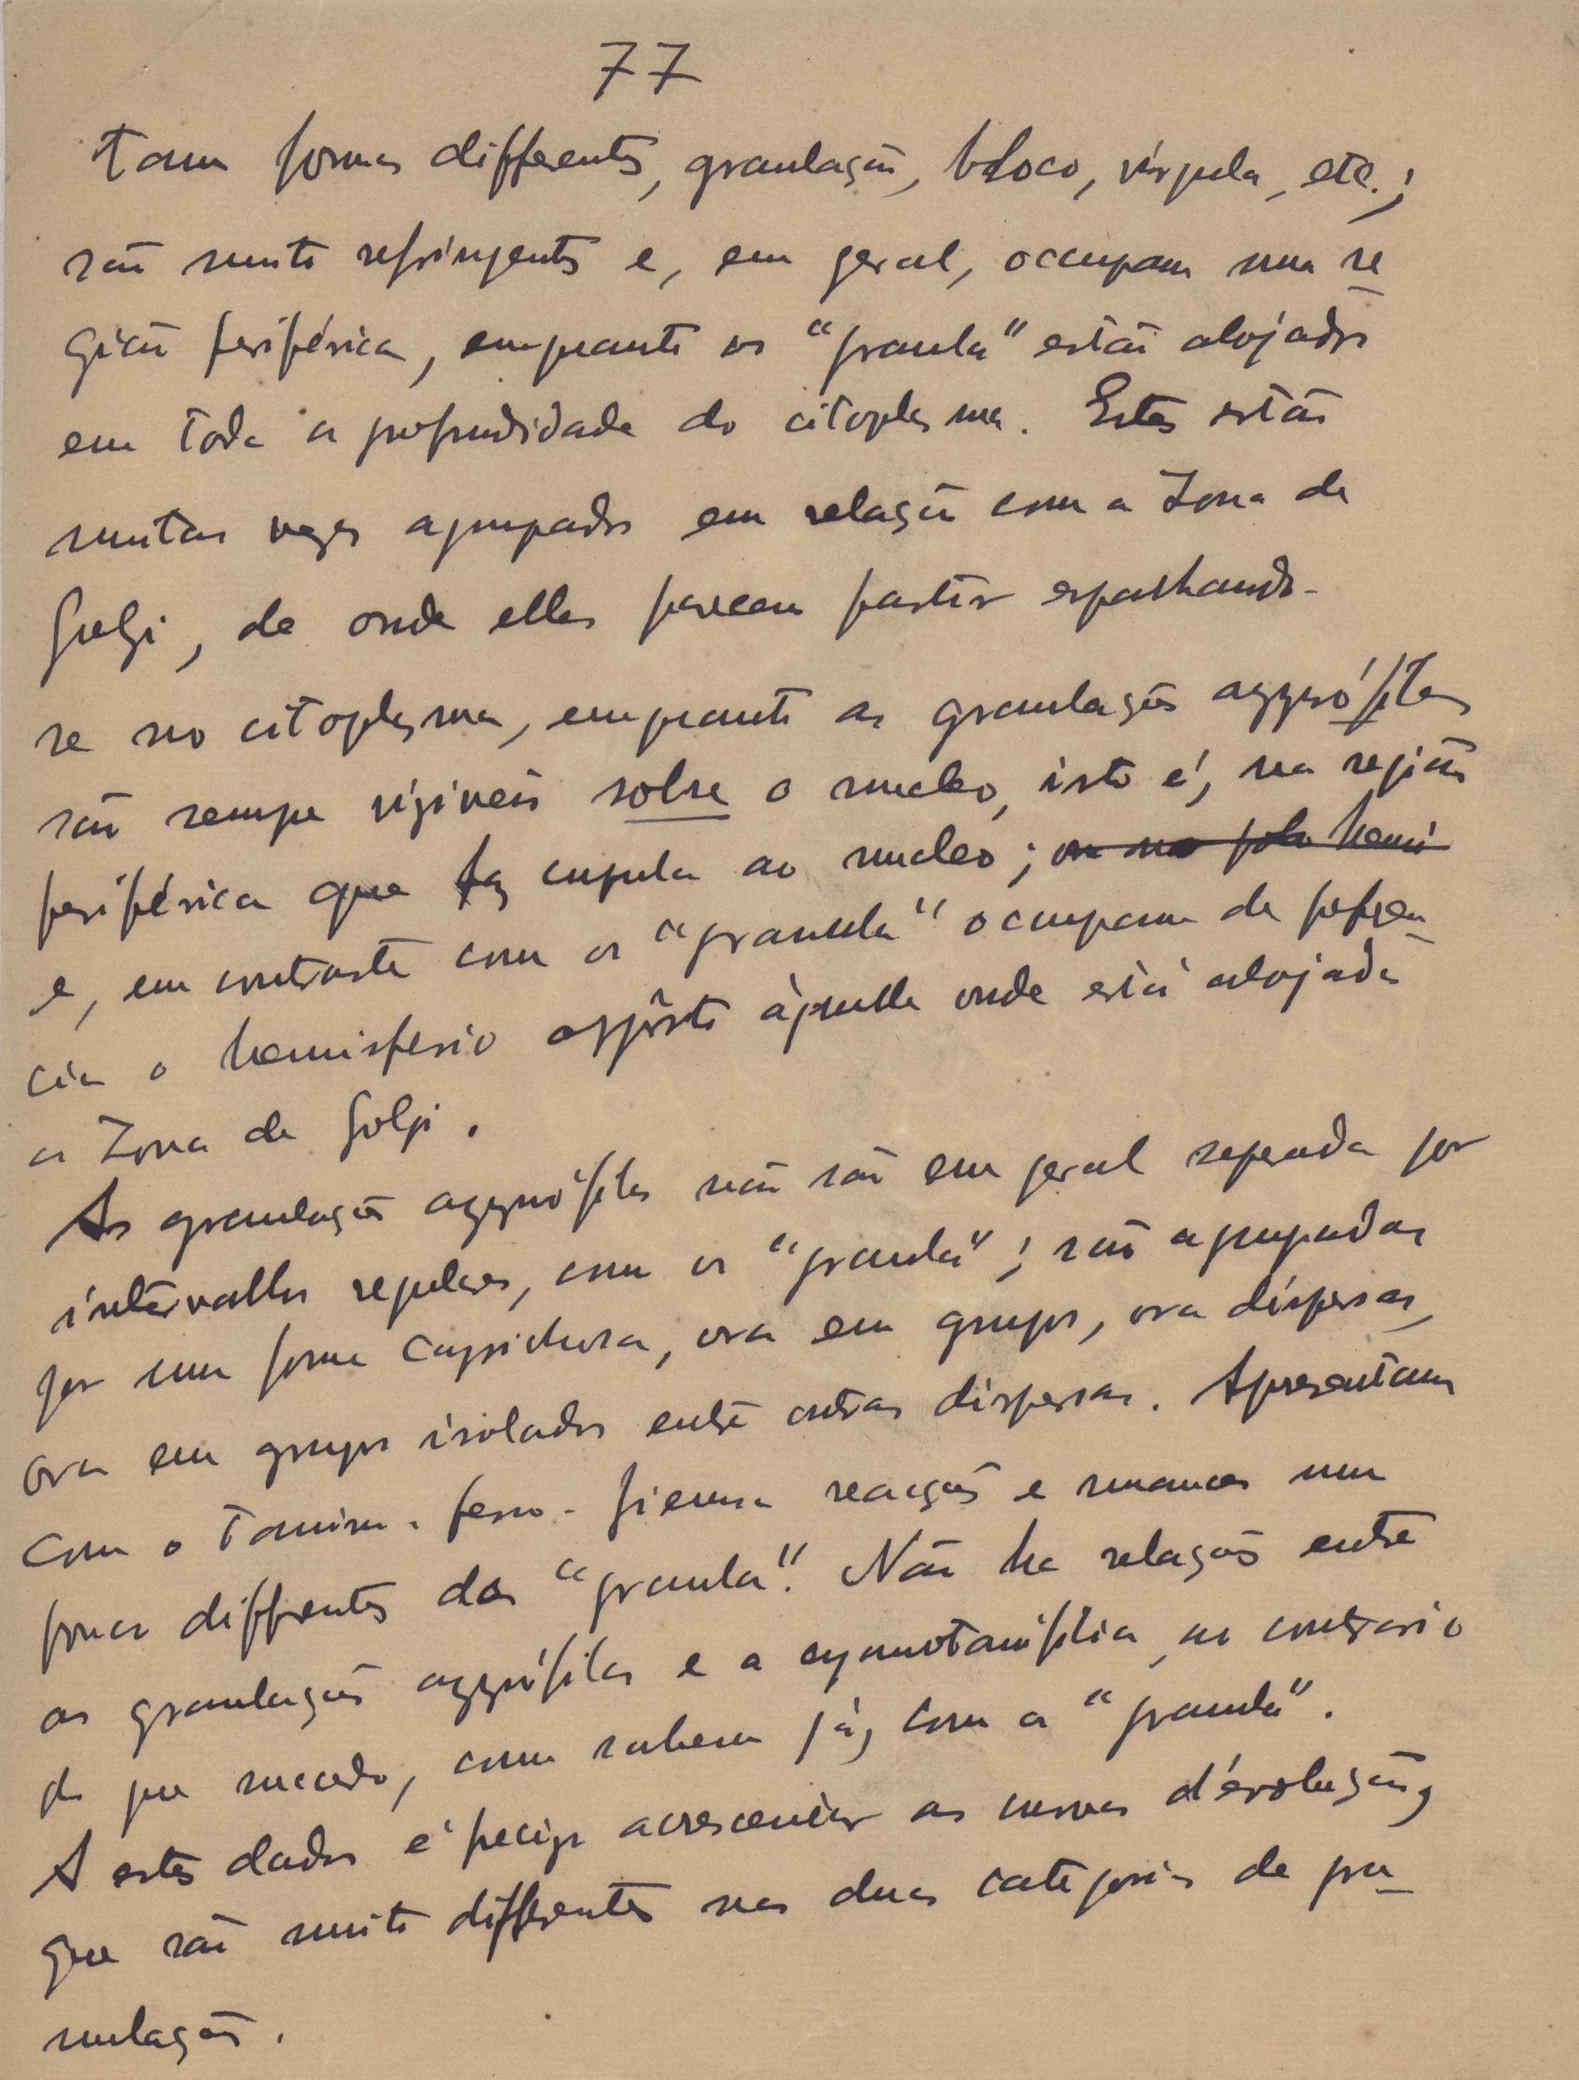 77
tam formas differentes, granulação, bloco, vírgula, etc.;
são muito refringentes e, em geral, occupam uma re
gião periférica, emquanto os "granula" estão alojados
em toda a profundidade do citoplasma. Estes estão
muitas vezes agrupados em relação com a zona de
Golgi, de onde elles parecem partir espalhando-
se no citoplasma, emquanto as granulações azurófilas
são sempre visiveis sobre o nucleo, isto é, na região
periférica que faz cupula ao nucleo; ou no polo hemi
e, em contraste com os "granula" occupam de preferen
cia o hemisferio opposto àquelle onde está alojada
a zona de Golgi.
As granulações azurófilas não são em geral separadas por
intervallos regulares, como os "granula"; são agrupadas
por uma forma caprichosa, ora em grupos, ora dispersas,
ora em grupos isolados entre outras dispersas. Apresentam
com o tanino-ferro-Giemsa reacções e nuances um
pouco differentes dos "granula". Não ha relações entre
as granulações azurófilas e a cyanotanofilia, ao contrario
do que succede, como sabem já, com a "granula".
A estes dados é preciso acrescentar as curvas d'évolução,
que são muito differentes nas duas categorias de gra
nulações.